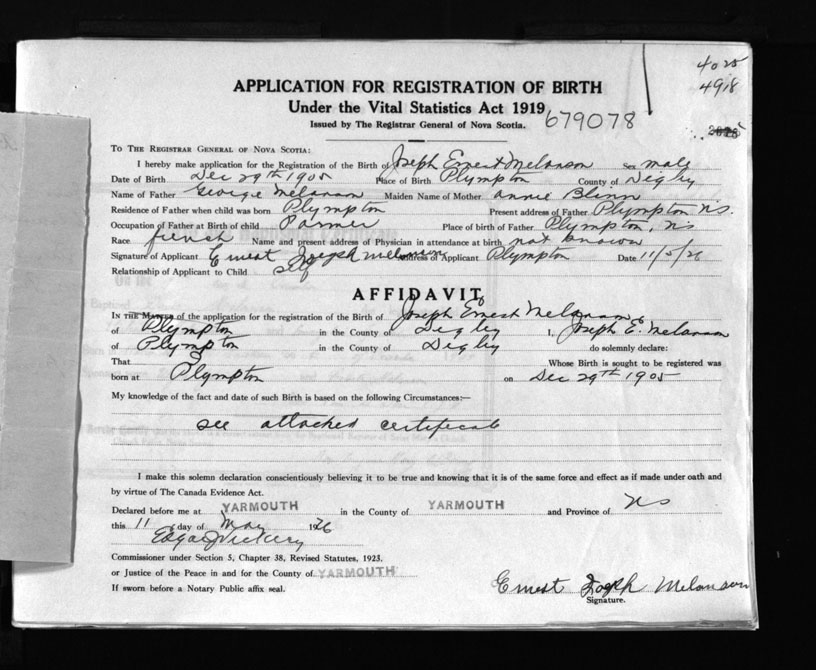 4025
4918
APPLICATION FOR REGISTRATION OF BIRTH
Under the Vital Statistics Act 1919
Issued by The Registrar General of Nova Scotia.
679078
TO THE REGISTRAR GENERAL OF NOVA SCOTIA:
I hereby make application for the Registration of the Birth of Joseph Ernest Melanson Sex male
Date of Birth Dec 29th 1905 Place of Birth Plympton County of Digby
Name of Father George Melanson Maiden Name of Mother Annie Blinn
Residence of Father when child was born Plympton Present address of Father Plympton NS.
Occupation of Father at Birth of child Farmer Place of birth of Father Plympton, NS
Race french Name and present address of Physician in attendance at birth not known
Signature of Applicant Ernest Joseph Melanson Address of Applicant Plympton Date 11/5/26
Relationship of Applicant to Child self
AFFIDAVIT
IN THE MATTER of the application for the registration of the Birth of Joseph Ernest Melanson
of Plympton in the County of Digby I, Joseph E. Melanson
of Plympton in the County of Digby do solemnly declare:
That I Whose Birth is sought to be registered was
born at Plympton on Dec 29th 1905
My knowledge of the fact and date of such Birth is based on the following Circumstances:—
see attached certificate
I make this solemn declaration conscientiously believing it to be true and knowing that it is of the same force and effect as if made under oath and
by virtue of The Canada Evidence Act.
Declared before me at YARMOUTH in the County of YARMOUTH and Province of NS
this 11 day of May 1926
Edgar J Vickery
Commissioner under Section 5, Chapter 38, Revised Statutes, 1923,
or Justice of the Peace in and for the County of YARMOUTH
If sworn before a Notary Public affix seal.
Ernest Joseph Melanson
Signature.